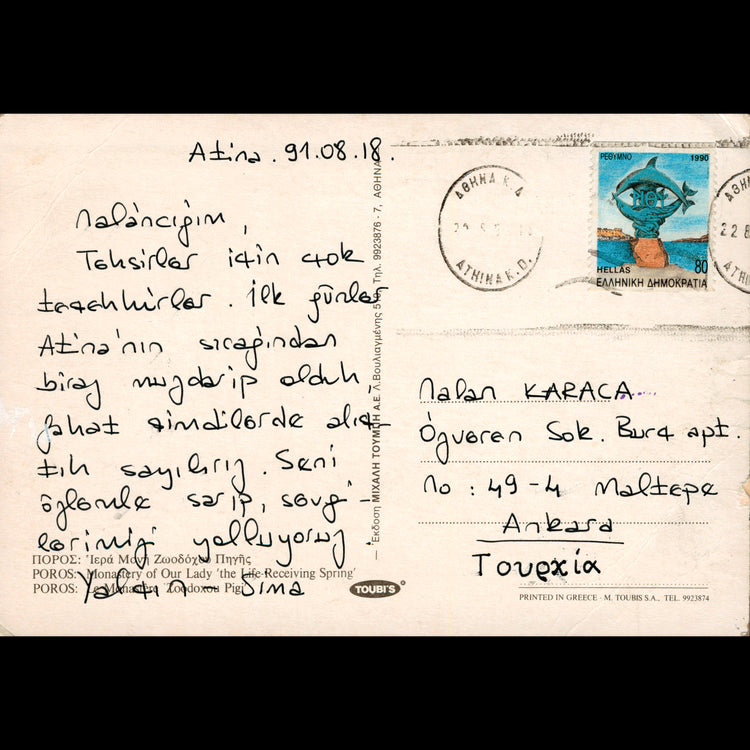 Atina. 91.08.18.
Nalâncığım,
Teksirler için çok
teşekkürler. İlk günler
Atina'nın sıcağından
biraz muzdarip olduk,
fakat şimdilerde alış-
tık sayılırız. Seni
özlemle sarıp, sevgi-
lerimizi yolluyoruz.
Yalçın - Sima
ΠΟΡΟΣ: Ἱερά Μονή Ζωοδόχου Πηγῆς
POROS: Monastery of Our Lady 'the Life-Receiving Spring'
POROS: Le Monastère Zoodoxou Pigi
TOUBI'S
Ἐκδοση ΜΙΧΑΛΗ ΤΟΥΜΠΗ Α.Ε. Λ.Βουλιαγμένης 519, Τηλ. 9923876 - 7, ΑΘΗΝΑ
ΑΘΗΝΑ Κ.Δ
ATHINA K.D.
ΡΕΘΥΜΝΟ 1990
HELLAS 80
ΕΛΛΗΝΙΚΗ ΔΗΜΟΚΡΑΤΙΑ
ΑΘΗΝ
22 8
ATHIN
Nalan KARACA
Özveren Sok. Burç apt.
No : 49-4 Maltepe
Ankara
Τουρχία
PRINTED IN GREECE - M. TOUBIS S.A., TEL. 9923874